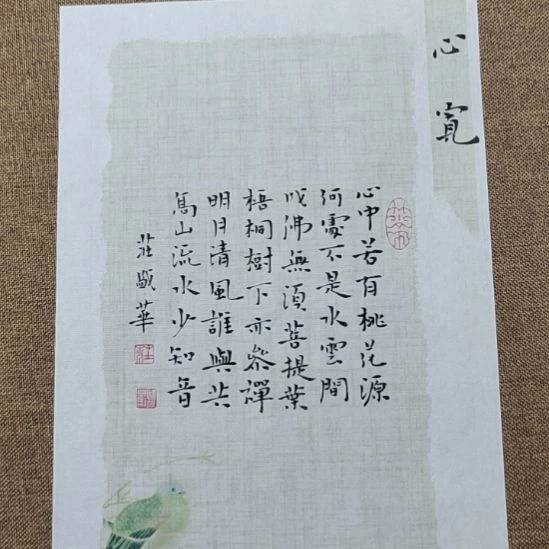 心寬
心中若有桃花源
何處不是水雲間
成佛無須菩提葉
梧桐樹下亦參禪
明月清風誰與共
高山流水少知音
莊駇華